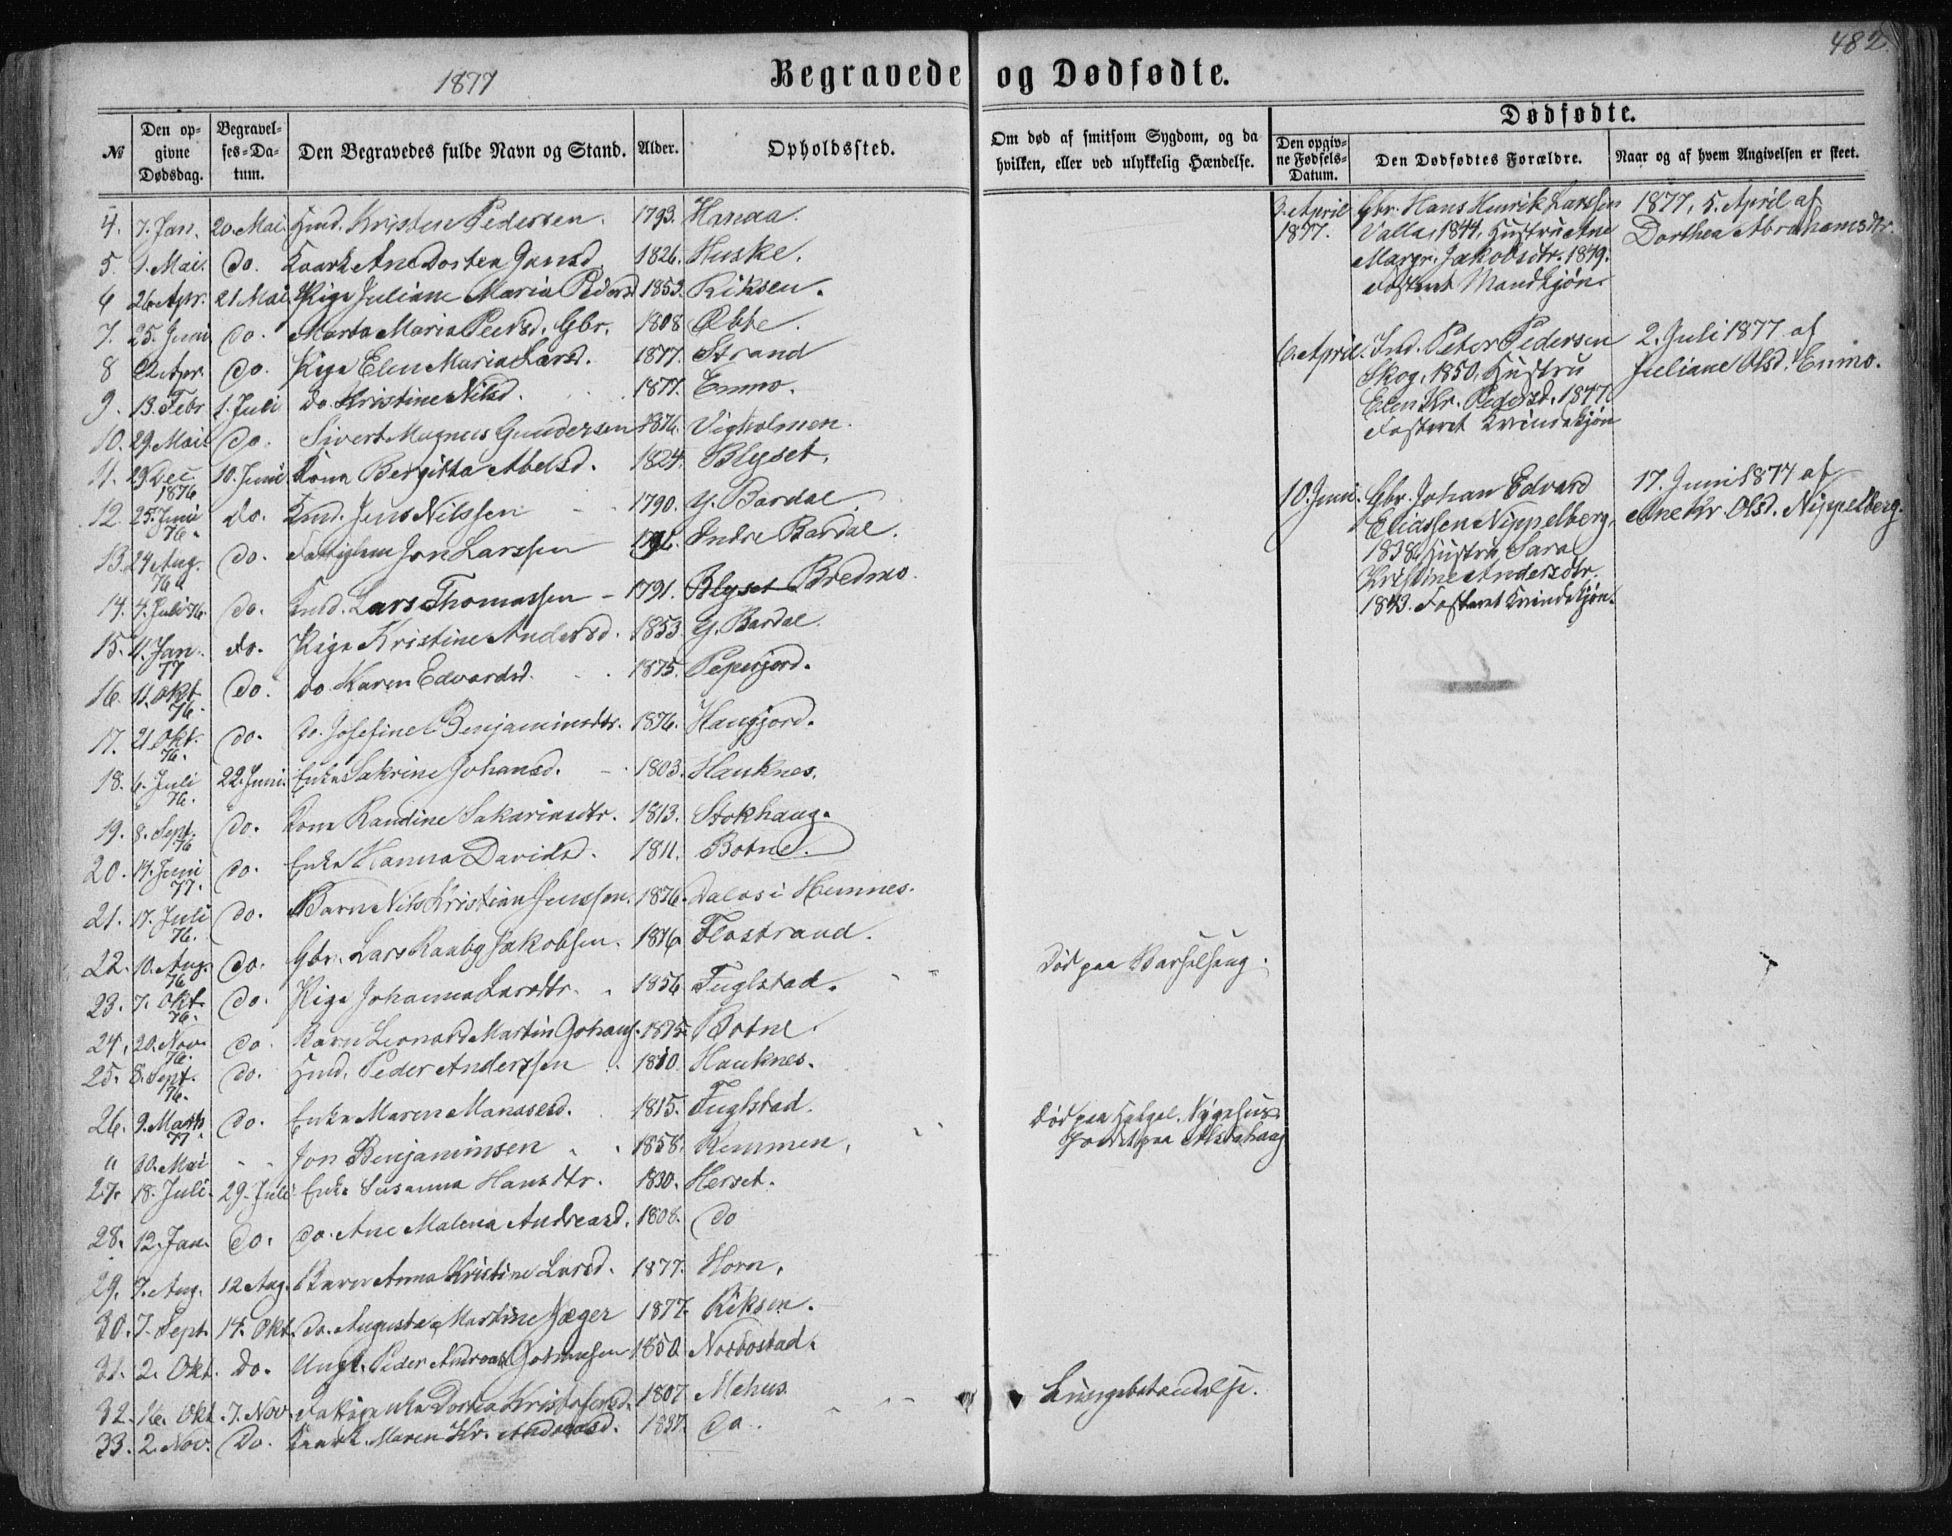 482
1877
Begravede og Dødfødte.
№
Den opgivne Dødsdag.
Begravelses-Datum.
Den Begravedes fulde Navn og Stand.
Alder.
Opholdssted.
Om død af smitsom Sygdom, og da hvilken, eller ved ulykkelig Hændelse.
Dødfødte.
Den opgivne Fødsels-Datum.
Den Dødfødtes Forældre.
Naar og af hvem Angivelsen er skeet.
4. 7. Jan. 20. Mai. Kristen Pedersen. 1793. Handa.
5. 1. Mai. do. Ane Dortea Jensd. 1826. Huske.
6 26 Apr. 21 Mai Pige Juliane Maria Pedersd 1853. Riksen.
7. 25. Juni do. Marta Maria Pedersd. Gbr. 1808
8 22 Apr. do. Pige Elen Maria Larsd. 1877. Strand
9. 13. Febr 1. Juli do Kristine Nilsd. 1877. Enmo.
10. 29. Mai do. Sivert Magnus Gundersen 1876. Vigholmen.
11. 29 Dec 1876 10. Juni Kona Bergitta Abelsd. 1824. Blyset.
12. 25. Juni 76. do. Jens Nilssen 1790. Y. Bardal.
13. 24 Aug. 76. do. Jon Larssen Indre Bardal.
14. 4. Juli 76. do. Lars Thomassen 1791. Blyset Bredmo.
15. 4. Jan. 77 do. Pige Kristine Andersd. 1853 Y. Bardal.
16. 11. Okt. 76. do. do Karen Edvardsd. 1875. Peperjord.
17. 21. Okt. 76. do. do. Josefine Benjaminsdtr. 1876. Haugjord.
18. 6. Juli 76. 22. Juni. Enke Sakrine Johansd. 1803. Hauknes.
19. 8. Sept. 76 do. Kona Randine Sakariasdtr. 1813. Stokhaug.
20. 14. Juni 77. do. Enke Hanna Davidsd. 1811. Botne.
21. 17. Juli 76. do. Barn Nils Kristian Jenssen. 1876. Dalos i Hemnes.
22. 10. Aug. 76 do. Gbr. Lars Raaby Jakobsen. 1876 Flostrand.
23. 7. Okt. 76. do. Pige Johanna Larsdtr. 1856 Fuglstad. Død paa Barselseng.
24. 20. Nov. 76. do. Barn Leonard Martin Johans. 1875. Botne.
25. 8. Sept. 76. do. Peder Anderssen 1810. Hauknes.
26. 9. Marts 77. do. Enke Maren Manasesd. 1815. Fuglstad.
" 30. Mai Jon Benjaminsen 1858. Remmen. Død paa Sygehus
Jordet paa Alstahaug
27. 18. Juli. 29. Juli Enke Susanna Hansdtr. 1830. Herset.
28. 12. Jan. do. do. Ane Malena Andreasd. 1808. do
29. 7. Aug. 12 Aug. Barn Anna Kristine Larsd. 1877. Horn.
30. 7. Sept. 14. Okt. do. Augusta Martine Jæger 1877. Riksen.
31. 2. Okt. do. Ungk. Peder Andreas Johansen 1850 Nordostad.
32. 16. Okt. 7. Nov. Dortea Kristofersd. 1807. Mehus. Lungebetændelse.
33. 2. Nov. do. Maren Kr. Andreasd. 1837. do.
3. April 1877. Gbr. Hans Henrik Larssen
Valla, 1844, Hustru Ane
Margr. Jakobsdtr. 1849.
Fosteret Mandkjøn.
1877, 5. April af
Dorthea Abrahamsdtr.
6. April. Ind. Peter Pedersen
Skog, 1850, Hustru
Elen Kr. Pedersd. 1847.
Fosteret Kvindekjøn
2. Juli 1877 af
Juliane Olsd. Enmo.
10. Juni. Gbr. Johan Edvard
Eliassen Nippelberg,
1838, Hustru Sara
Kristine Andersdtr.
1843. Fosteret Kvindekjøn.
17. Juni 1877 af
Ane Kr. Olsd. Nippelberg.